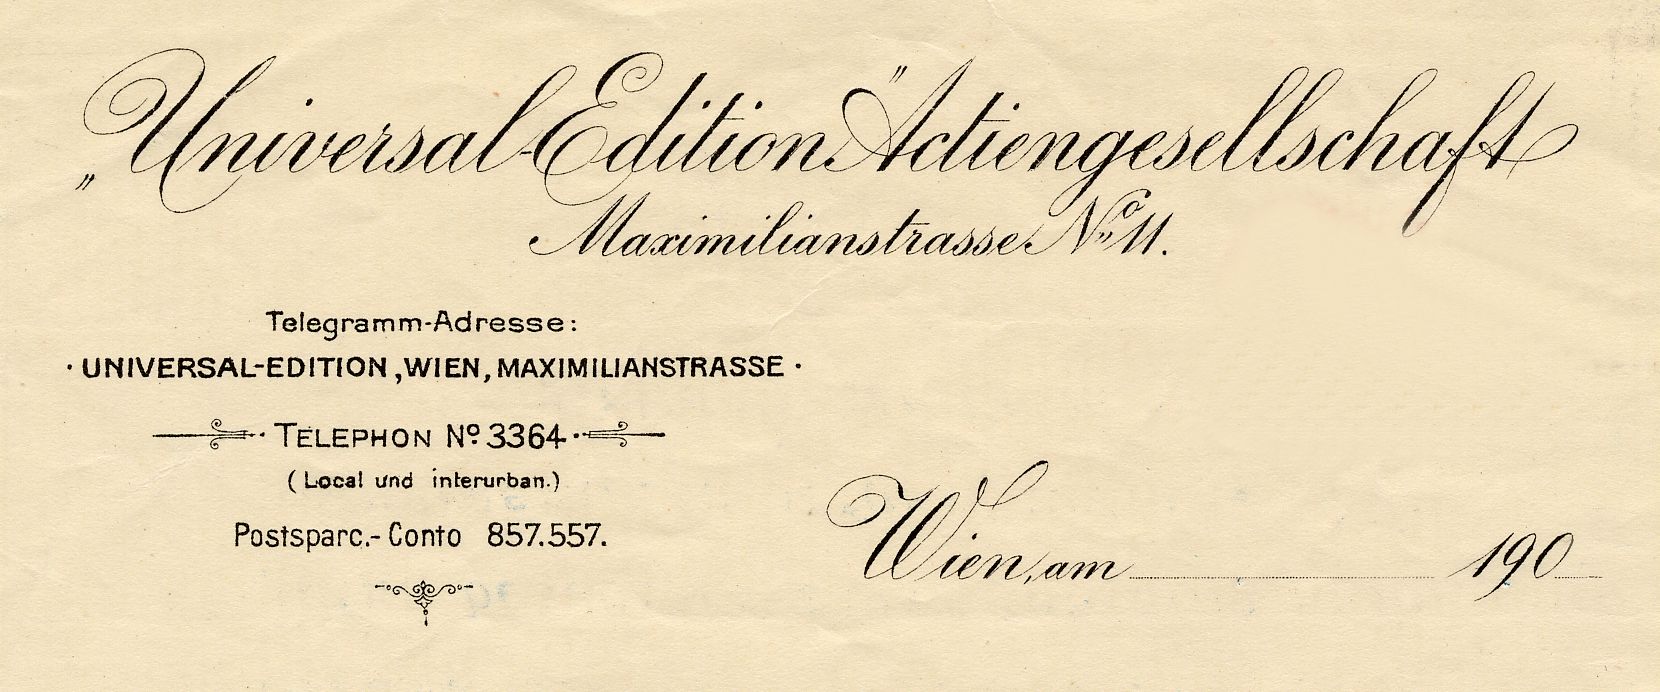 „Universal-Edition" Actiengesellschaft
Maximilianstrasse No 11.
Telegramm-Adresse:
· UNIVERSAL-EDITION, WIEN, MAXIMILIANSTRASSE ·
TELEPHON No 3364
(Local und interurban.)
Postsparc.-Conto 857.557.
Wien, am 190